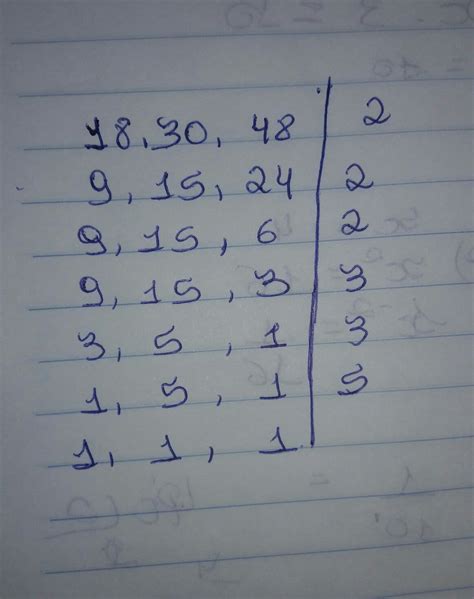 18, 30, 48 | 2
9, 15, 24 | 2
9, 15, 6 | 2
9, 15, 3 | 3
3, 5, 1 | 3
1, 5, 1 | 5
1, 1, 1 |